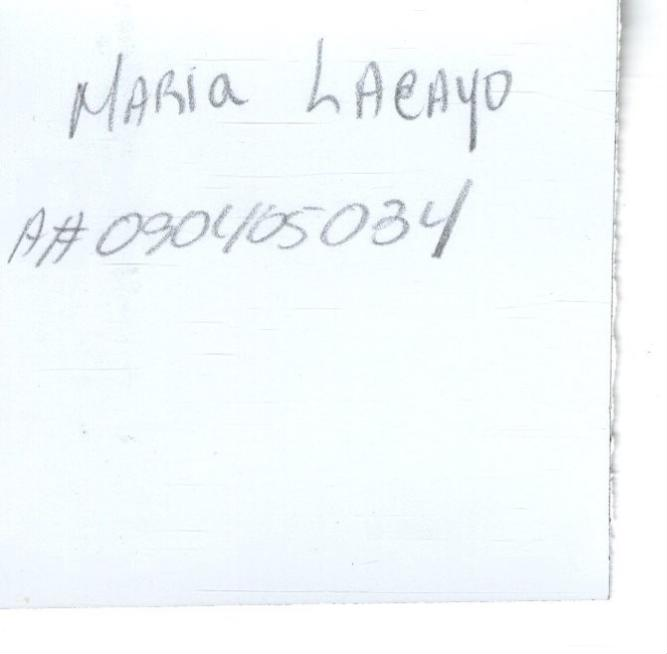 Maria Lacayo
A# 090405034